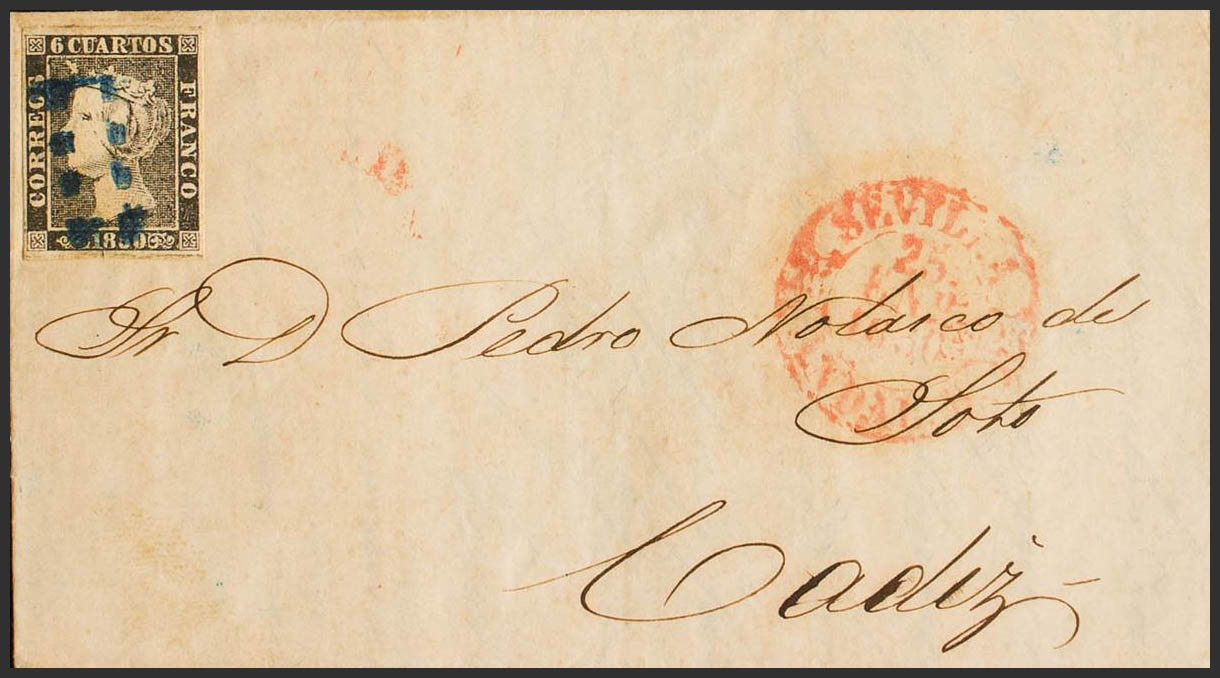 6 CUARTOS
CORREOS
FRANCO
1850
SEVILLA
25
Sr D Pedro Nolasco de
Soto
Cadiz